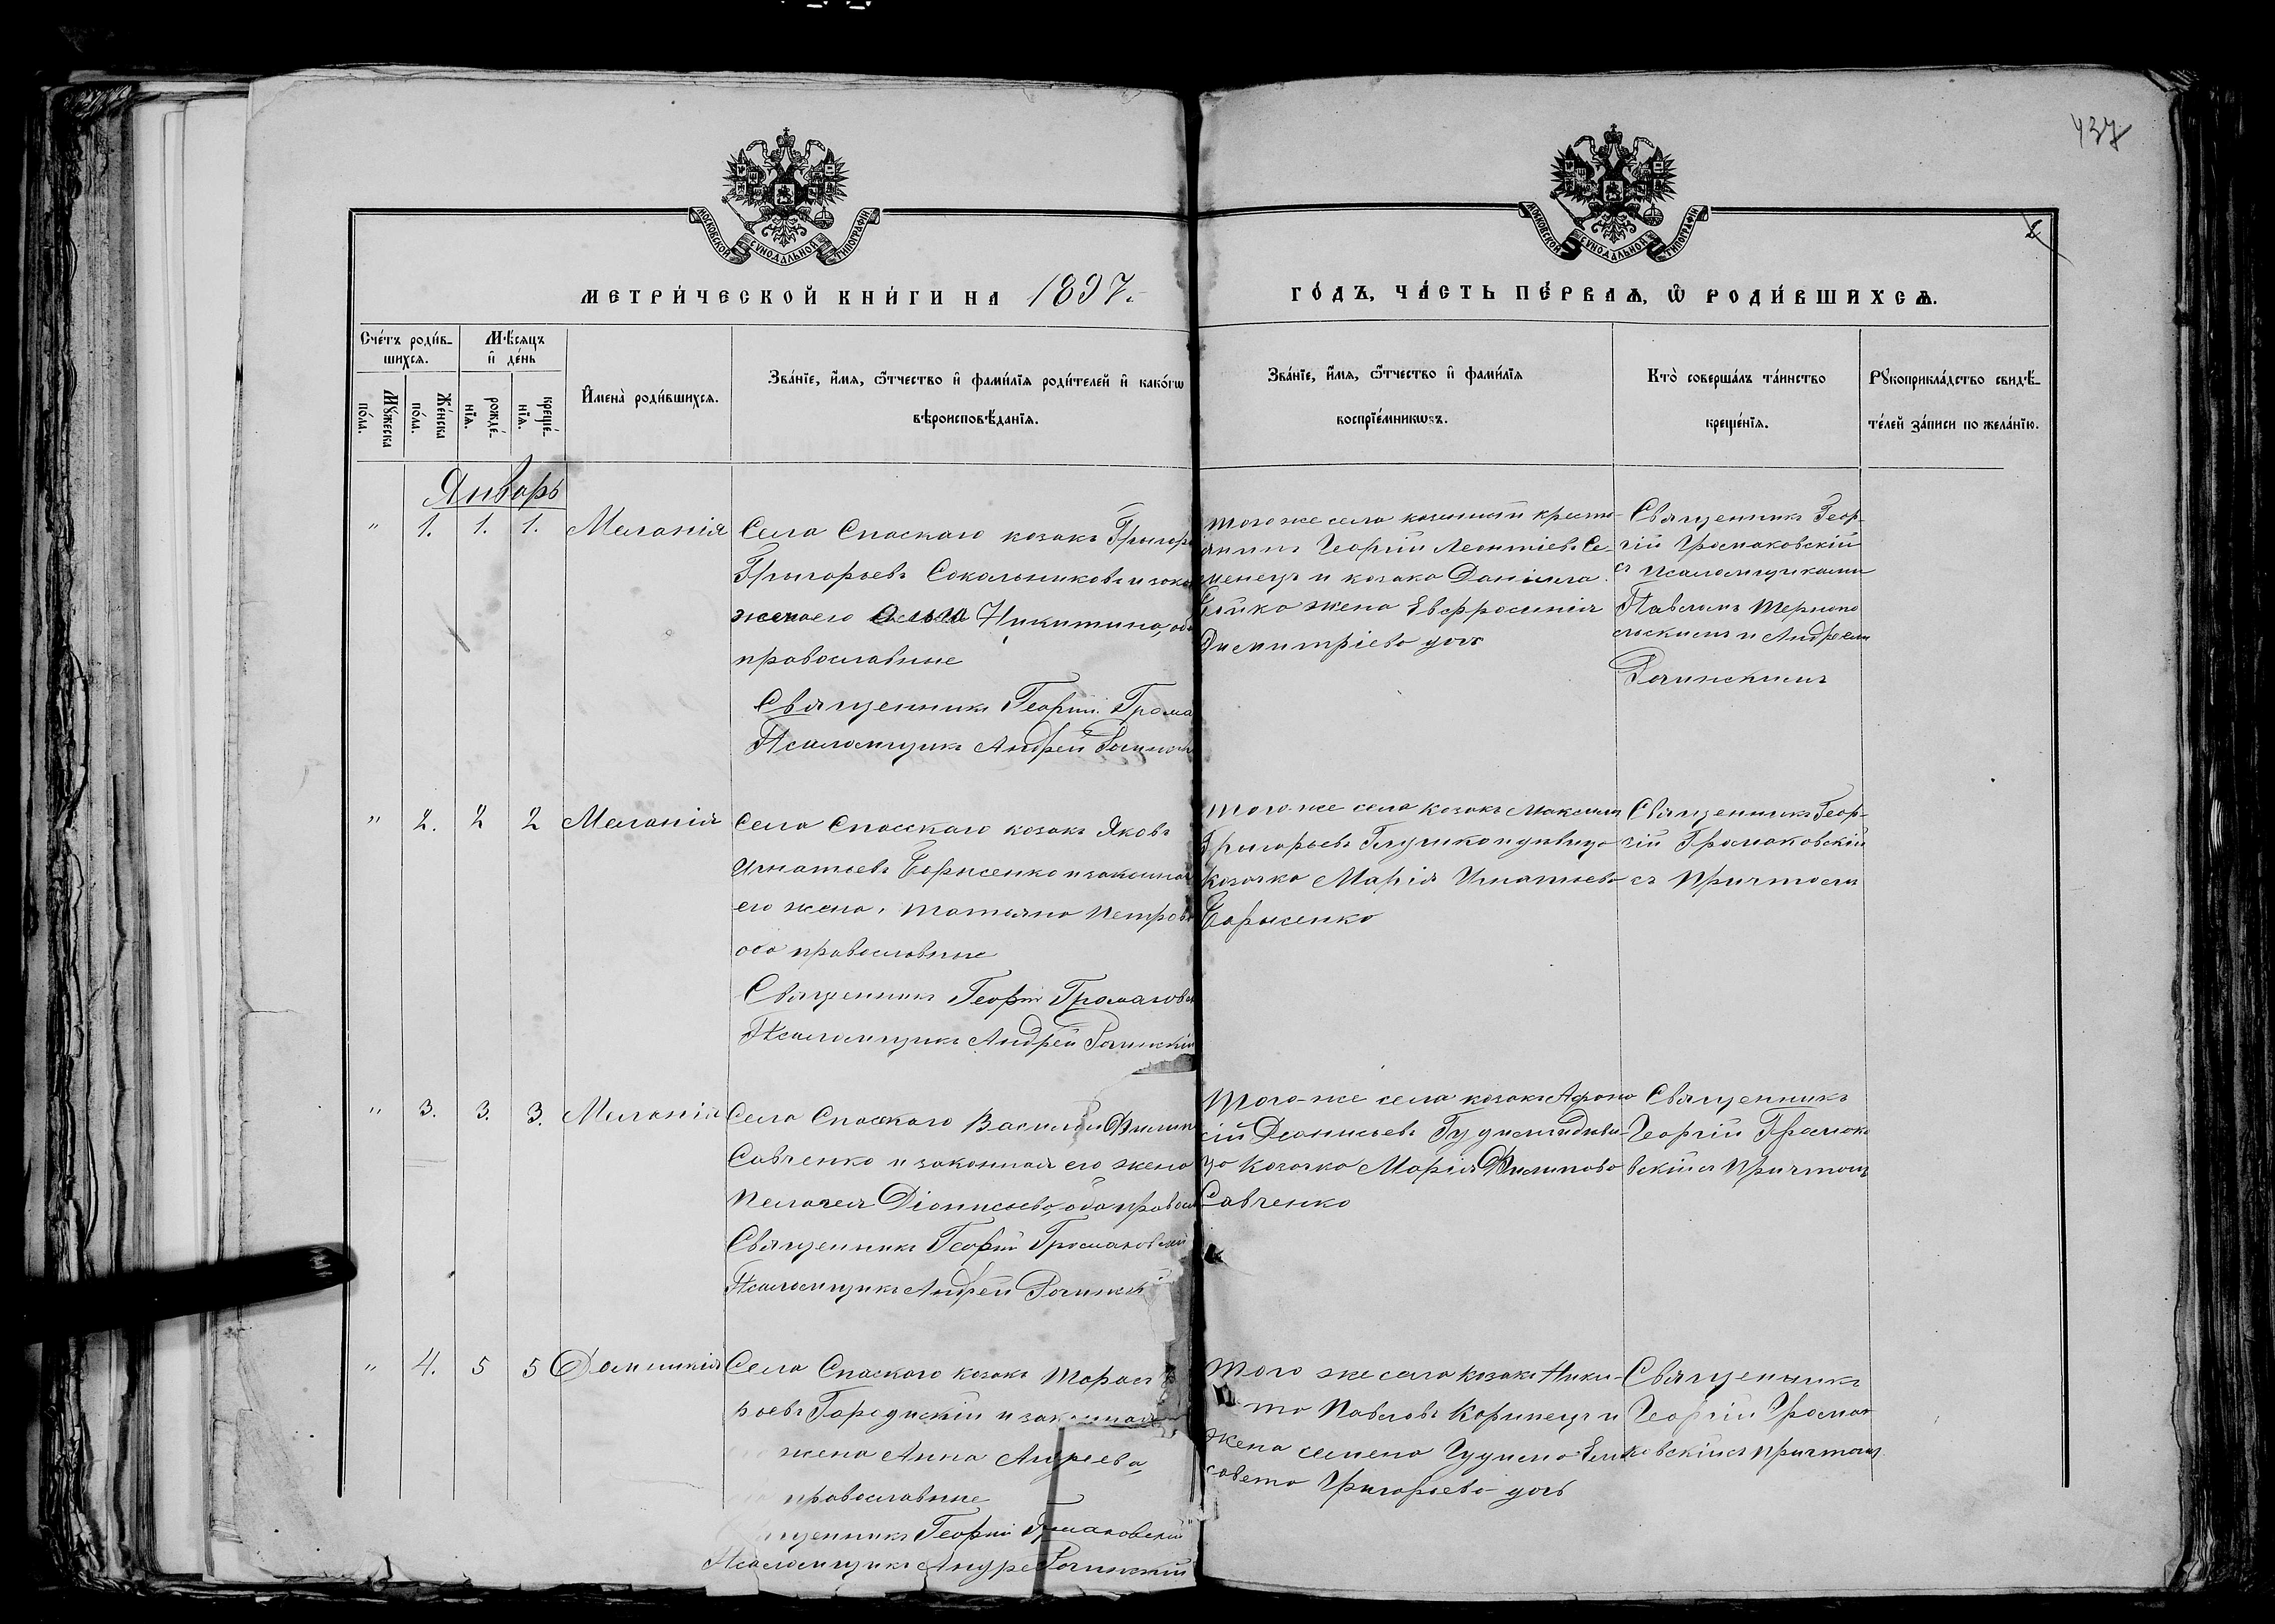 437
МОСКОВСКОЙ СѴНОДАЛЬНОЙ ТИПОГРАФІИ
МОСКОВСКОЙ СѴНОДАЛЬНОЙ ТИПОГРАФІИ
МЕТРИ́ЧЕСКОЙ КНИ́ГИ НА 1897.
ГО́ДЪ, ЧА́СТЬ ПЕ́РВАѦ, Ѡ҆ РОДИ́ВШИХСѦ.
Сче́тъ роди́в-
шихсѧ.
Мꙋ́жеска
по́ла.
Же́нска
по́ла.
Мѣ́сѧцъ
и҆ де́нь
рожде́-
нїѧ.
креще́-
нїѧ.
И҆мена̀ роди́вшихсѧ.
Зва́нїе, и҆́мѧ, ѻ҆́тчество и҆ фами́лїѧ роди́телей и҆ како́гѡ
вѣроисповѣ́данїѧ.
Зва́нїе, и҆́мѧ, ѻ҆́тчество и҆ фами́лїѧ
воспрїе́мникѡвъ.
Кто̀ соверша́лъ та́инство
креще́нїѧ.
Рꙋкоприкла́дство свидѣ́-
телей за́писи по жела́нїю.
Январь
" 1. 1. 1. Меланія
Села Спаскаго козакъ Григорі
Григорьевъ Сокольниковъ и закон
жена его Никитина, оба
православные
Священникъ Георгій Грома
Псаломщикъ Андрей
того же села казенный крестья-
нинъ Георгій Леонтіевъ Се-
менецъ и козака Даніила
жена Евфросинія
Димитріева дочь
Священникъ Геор-
гій Громаковскій
съ псаломщиками
Павломъ
и Андреем
" 2. 2 2 Меланія
Села Спасскаго козакъ Яковъ
Игнатьевъ Борисенко и законная
его жена, Татьяна Петрова
оба православные
Священникъ Георгій Громаковск
Псаломщикъ Андрей
того-же села козакъ Максимъ
Григорьевъ и дѣвица
козачка Марія Игнатьева
Борисенко
Священникъ Геор-
гій Громаковскій
съ причтомъ
" 3. 3. 3. Меланія
Села Спаскаго Василій Филип
Савченко и законная его жена
Пелагея Діонисьева, оба правосл
Священникъ Георгій Громаковскій
Псаломщикъ Андрей
Того-же села козакъ Афана
сій Деонисьевъ и дѣви-
ца козачка Марія Филипова
Савченко
Священникъ
Георгій Громако
вскій съ причтомъ
" 4. 5 5 Домникія
Села Спаскаго козакъ Тарасъ
роевъ и законная
жена Анна Андреева,
православные
щенникъ Георгій Громаковскій
Псаломщикъ Андре
того же села козакъ Ники-
та Павловъ Коринецъ и
жена Семена Ели
савета Григорьева дочь
Священникъ
Георгій Громак
ковскій съ причтомъ